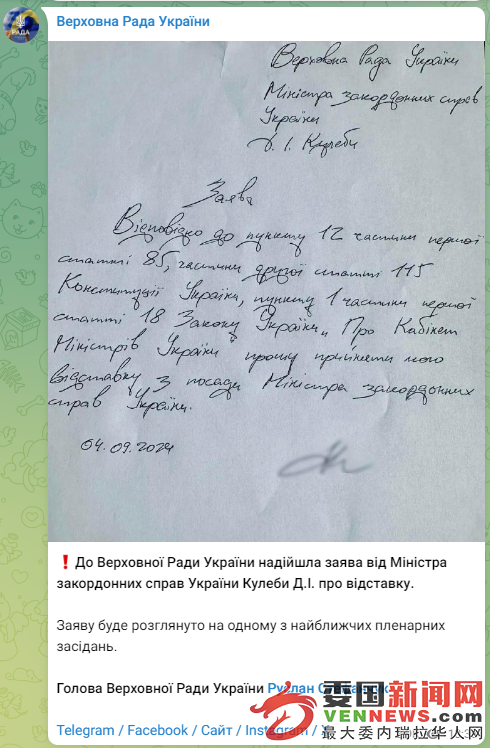 Верховна Рада України
РАДА
Верховна Рада України
Міністра закордонних справ
України
Д. І. Кулеби
Заява
Відповідно до пункту 12 частини першої
статті 85, частини другої статті 115
Конституції України, пункту 1 частини першої
статті 18 Закону України „Про Кабінет
Міністрів України" прошу прийняти мою
відставку з посади Міністра закордонних
справ України.
04.09.2024
❗ До Верховної Ради України надійшла заява від Міністра
закордонних справ України Кулеби Д.І. про відставку.
Заяву буде розглянуто на одному з найближчих пленарних
засідань.
Голова Верховної Ради України Руслан
委国新闻网
VENNEWS.COM
Telegram / Facebook / Сайт / Instagram /
最大委内瑞拉华人网